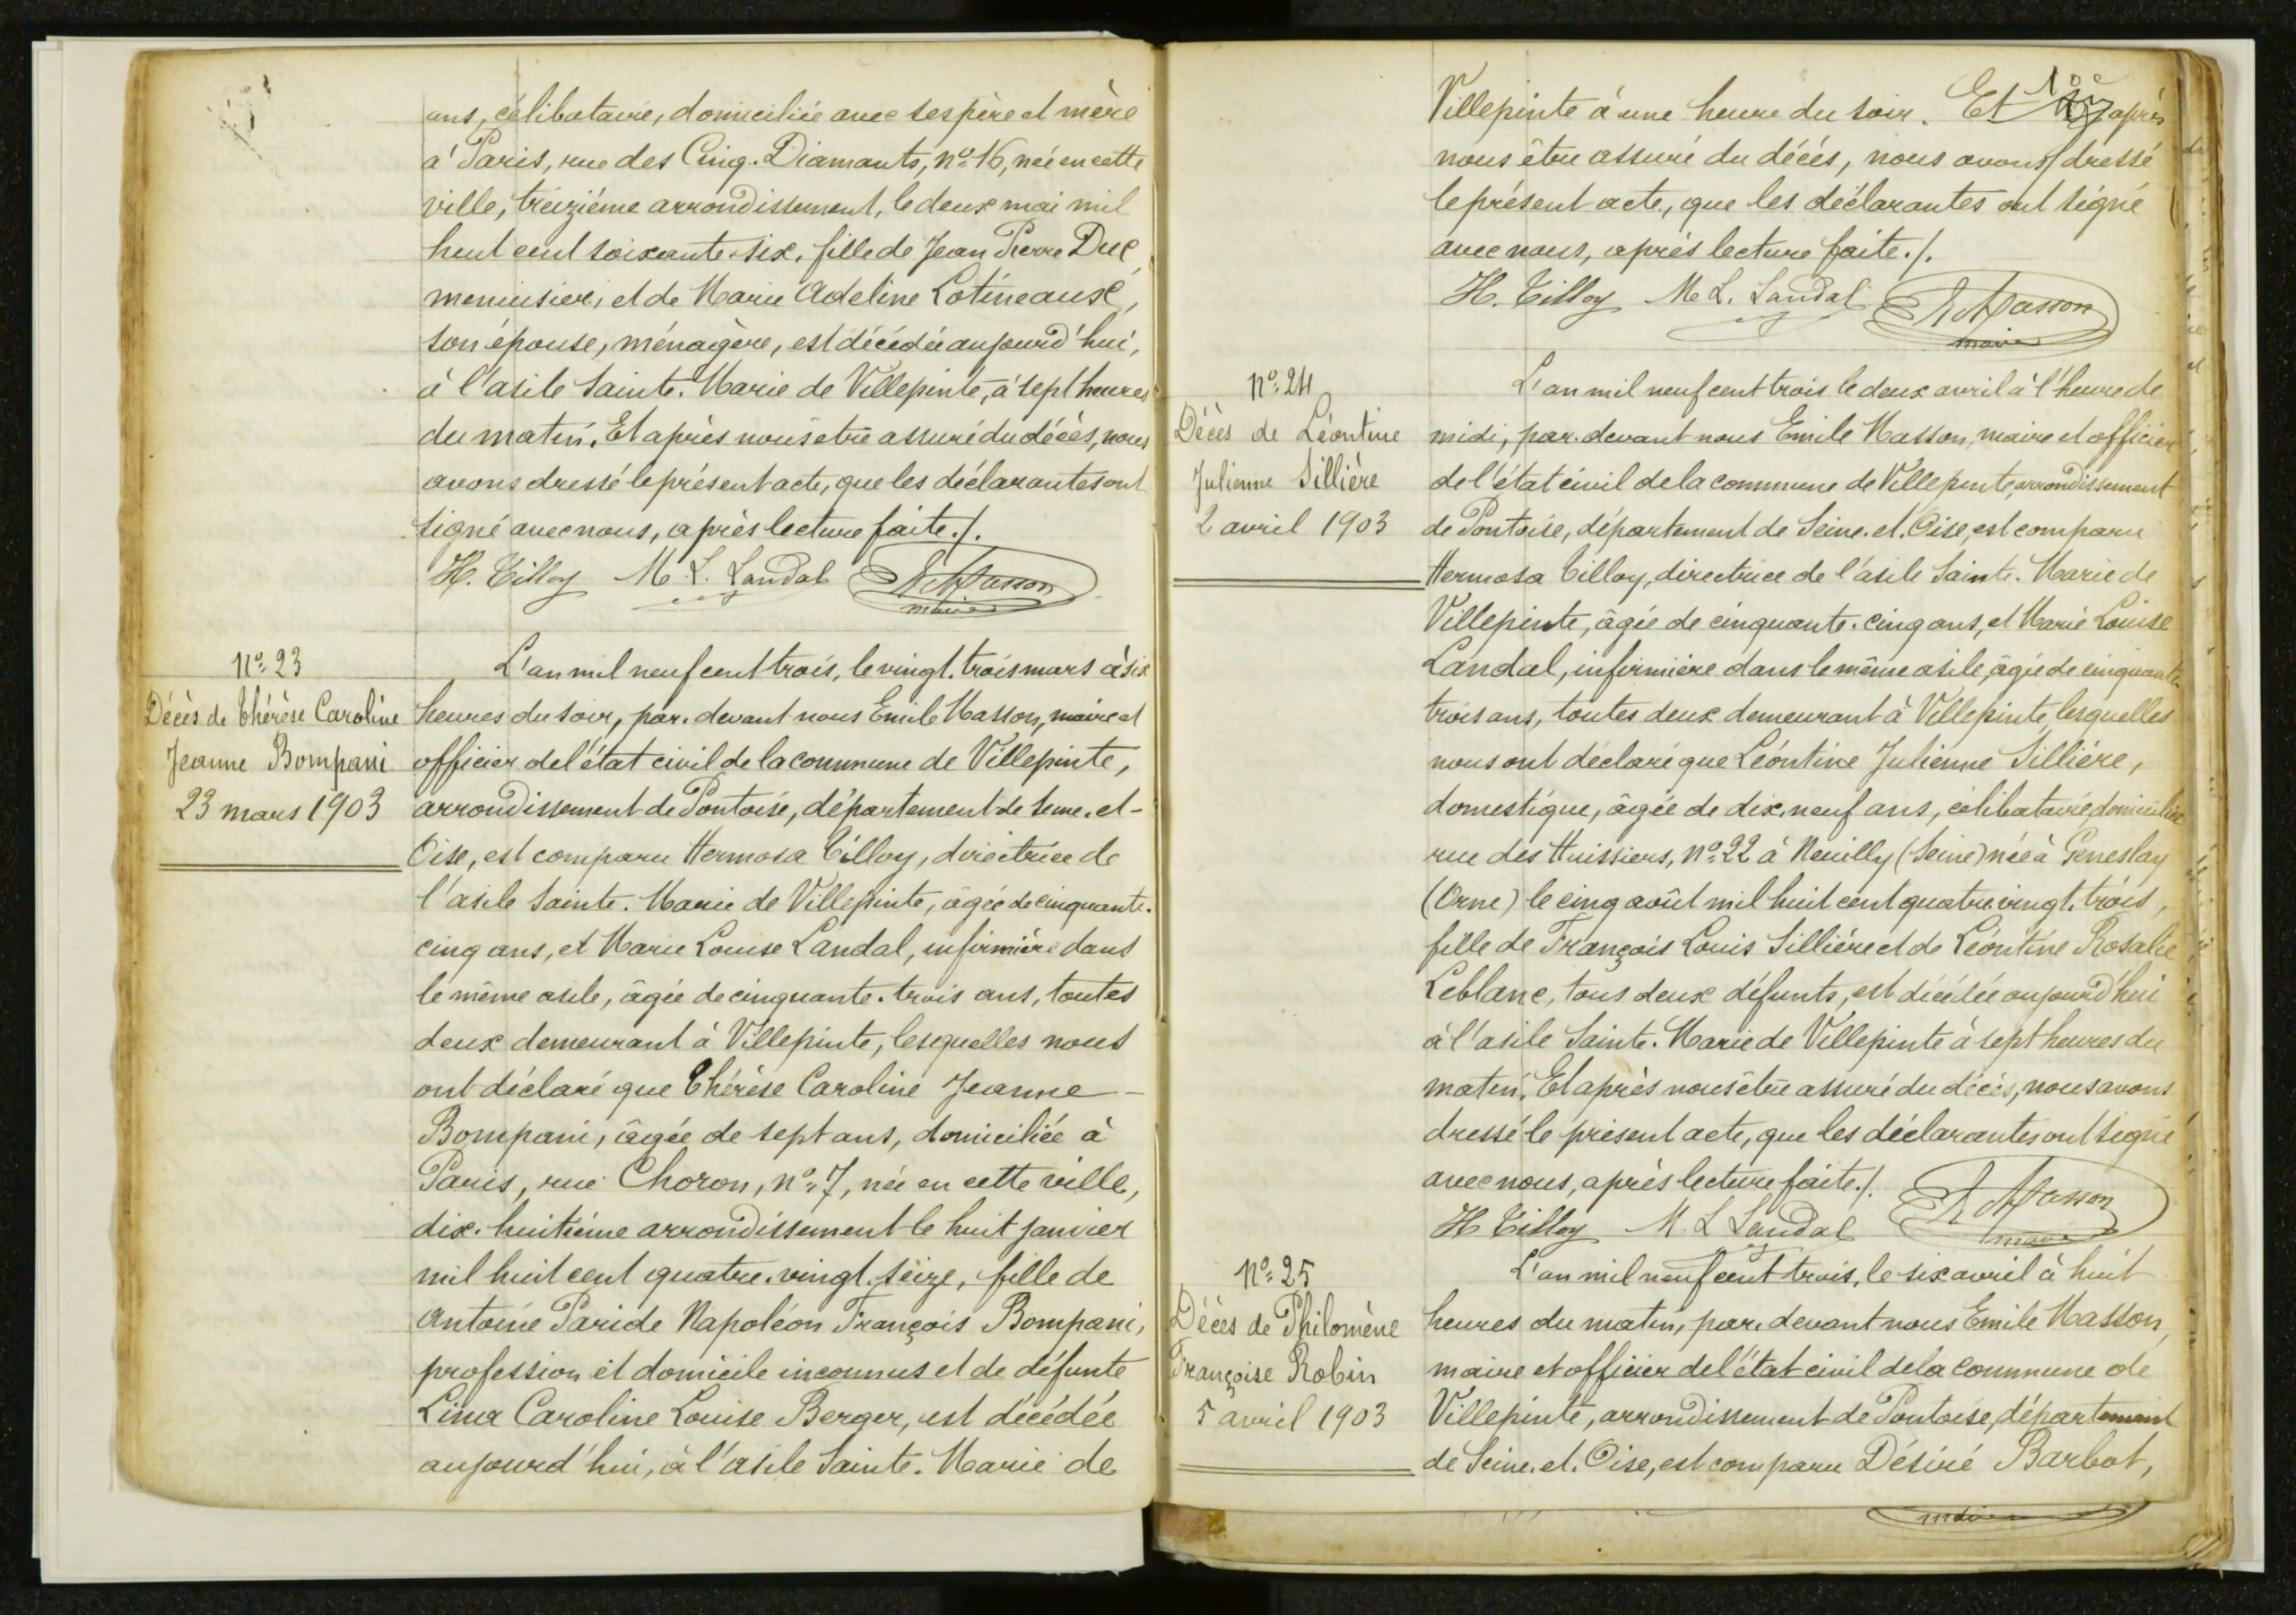 ans, célibataire, domiciliée avec ses père et mère
à Paris, rue des Cinq-Diamants, n° 16, née en cette
ville, treizième arrondissement, le deux mai mil
huit cent soixante-six, fille de Jean Pierre Duc,
menuisier, et de Marie Adeline Lotineaux,
son épouse, ménagère, est décédée aujourd'hui,
à l'asile Sainte-Marie de Villepinte, à sept heures
du matin. Et après nous être assuré du décès, nous
avons dressé le présent acte, que les déclarantes ont
signé avec nous, après lecture faite./.
H. Tilloy M. L. Landal E Masson
maire
N° 23
Décès de Thérèse Caroline
Jeanne Bompani
23 mars 1903
L'an mil neuf cent trois, le vingt-trois mars à six
heures du soir, par-devant nous Emile Masson, maire et
officier de l'état civil de la commune de Villepinte,
arrondissement de Pontoise, département de Seine-et-
Oise, est comparu Hermosa Tilloy, directrice de
l'asile Sainte-Marie de Villepinte, âgée de cinquante-
cinq ans, et Marie Louise Landal, infirmière dans
le même asile, âgée de cinquante-trois ans, toutes
deux demeurant à Villepinte, lesquelles nous
ont déclaré que Thérèse Caroline Jeanne -
Bompani, âgée de sept ans, domiciliée à
Paris, rue Choron, n° 7, née en cette ville,
dix-huitième arrondissement le huit janvier
mil huit cent quatre-vingt-seize, fille de
Antoine Paride Napoléon François Bompani,
profession et domicile inconnus et de défunte
Lina Caroline Louise Berger, est décédée
aujourd'hui, à l'asile Sainte-Marie de
Villepinte à une heure du soir. Et après
nous être assuré du décès, nous avons dressé
le présent acte, que les déclarantes ont signé
avec nous, après lecture faite./.
H. Tilloy M. L. Landal E Masson
maire
N° 24
Décès de Léontine
Julienne Sillière
2 avril 1903
L'an mil neuf cent trois le deux avril à l'heure de
midi, par-devant nous Emile Masson, maire et officier
de l'état civil de la commune de Villepinte, arrondissement
de Pontoise, département de Seine-et-Oise, est comparu
Hermosa Tilloy, directrice de l'asile Sainte-Marie de
Villepinte, âgée de cinquante-cinq ans, et Marie Louise
Landal, infirmière dans le même asile, âgée de cinquante-
trois ans, toutes deux demeurant à Villepinte, lesquelles
nous ont déclaré que Léontine Julienne Sillière,
domestique, âgée de dix-neuf ans, célibataire, domiciliée
rue des Huissiers, n° 22 à Neuilly (Seine) née à Geneslay
(Orne) le cinq août mil huit cent quatre-vingt-trois,
fille de François Louis Sillière et de Léontine Rosalie
Leblanc, tous deux défunts, est décédée aujourd'hui
à l'asile Sainte-Marie de Villepinte à sept heures du
matin. Et après nous être assuré du décès, nous avons
dressé le présent acte, que les déclarantes ont signé
avec nous, après lecture faite./.
H Tilloy M. L Landal E Masson
maire
N° 25
Décès de Philomène
Françoise Robin
5 avril 1903
L'an mil neuf cent trois, le six avril à huit
heures du matin, par-devant nous Emile Masson,
maire et officier de l'état civil de la commune de
Villepinte, arrondissement de Pontoise, département
de Seine-et-Oise, est comparu Désiré Barbot,
maire